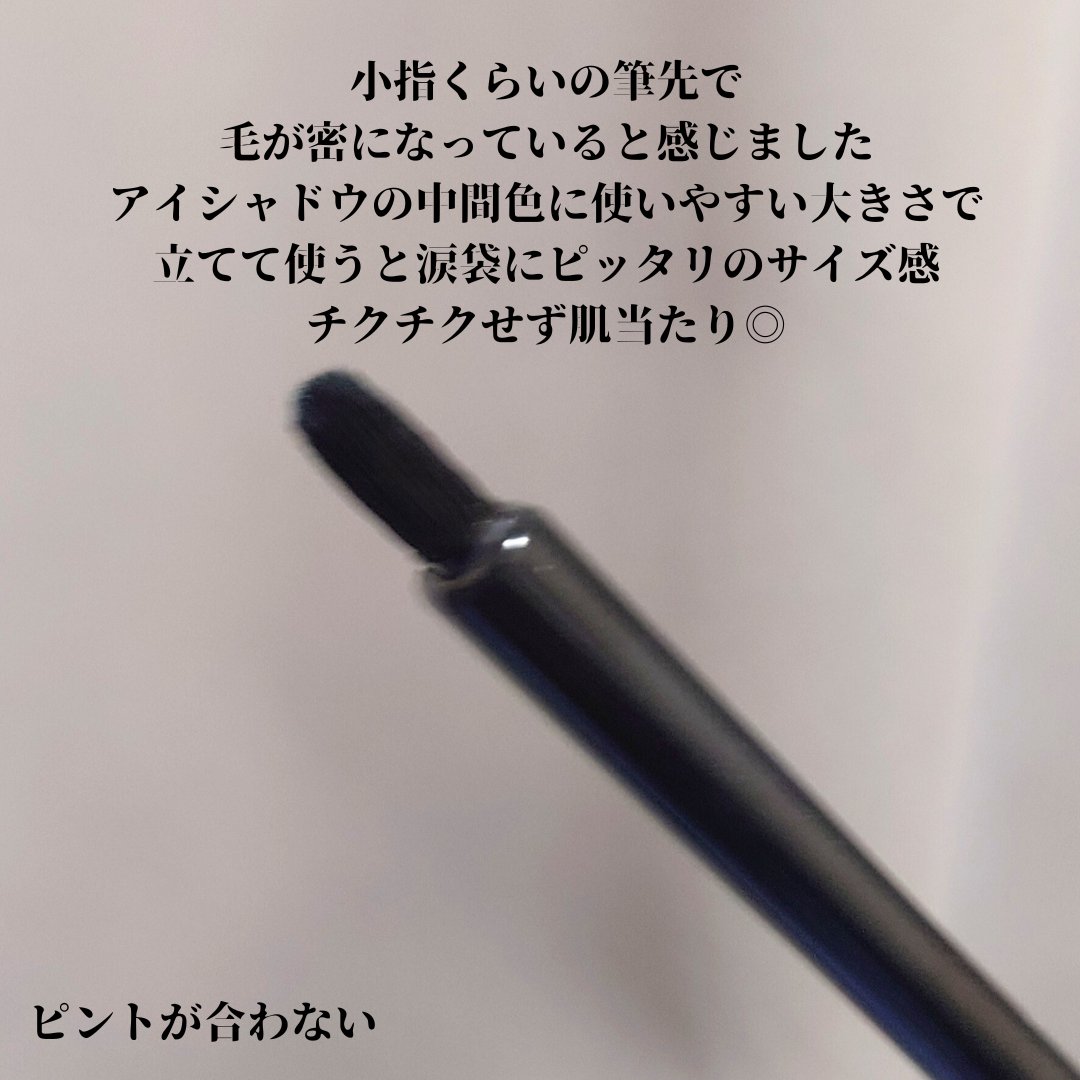 小指くらいの筆先で
毛が密になっていると感じました
アイシャドウの中間色に使いやすい大きさで
立てて使うと涙袋にピッタリのサイズ感
チクチクせず肌当たり◎
ピントが合わない